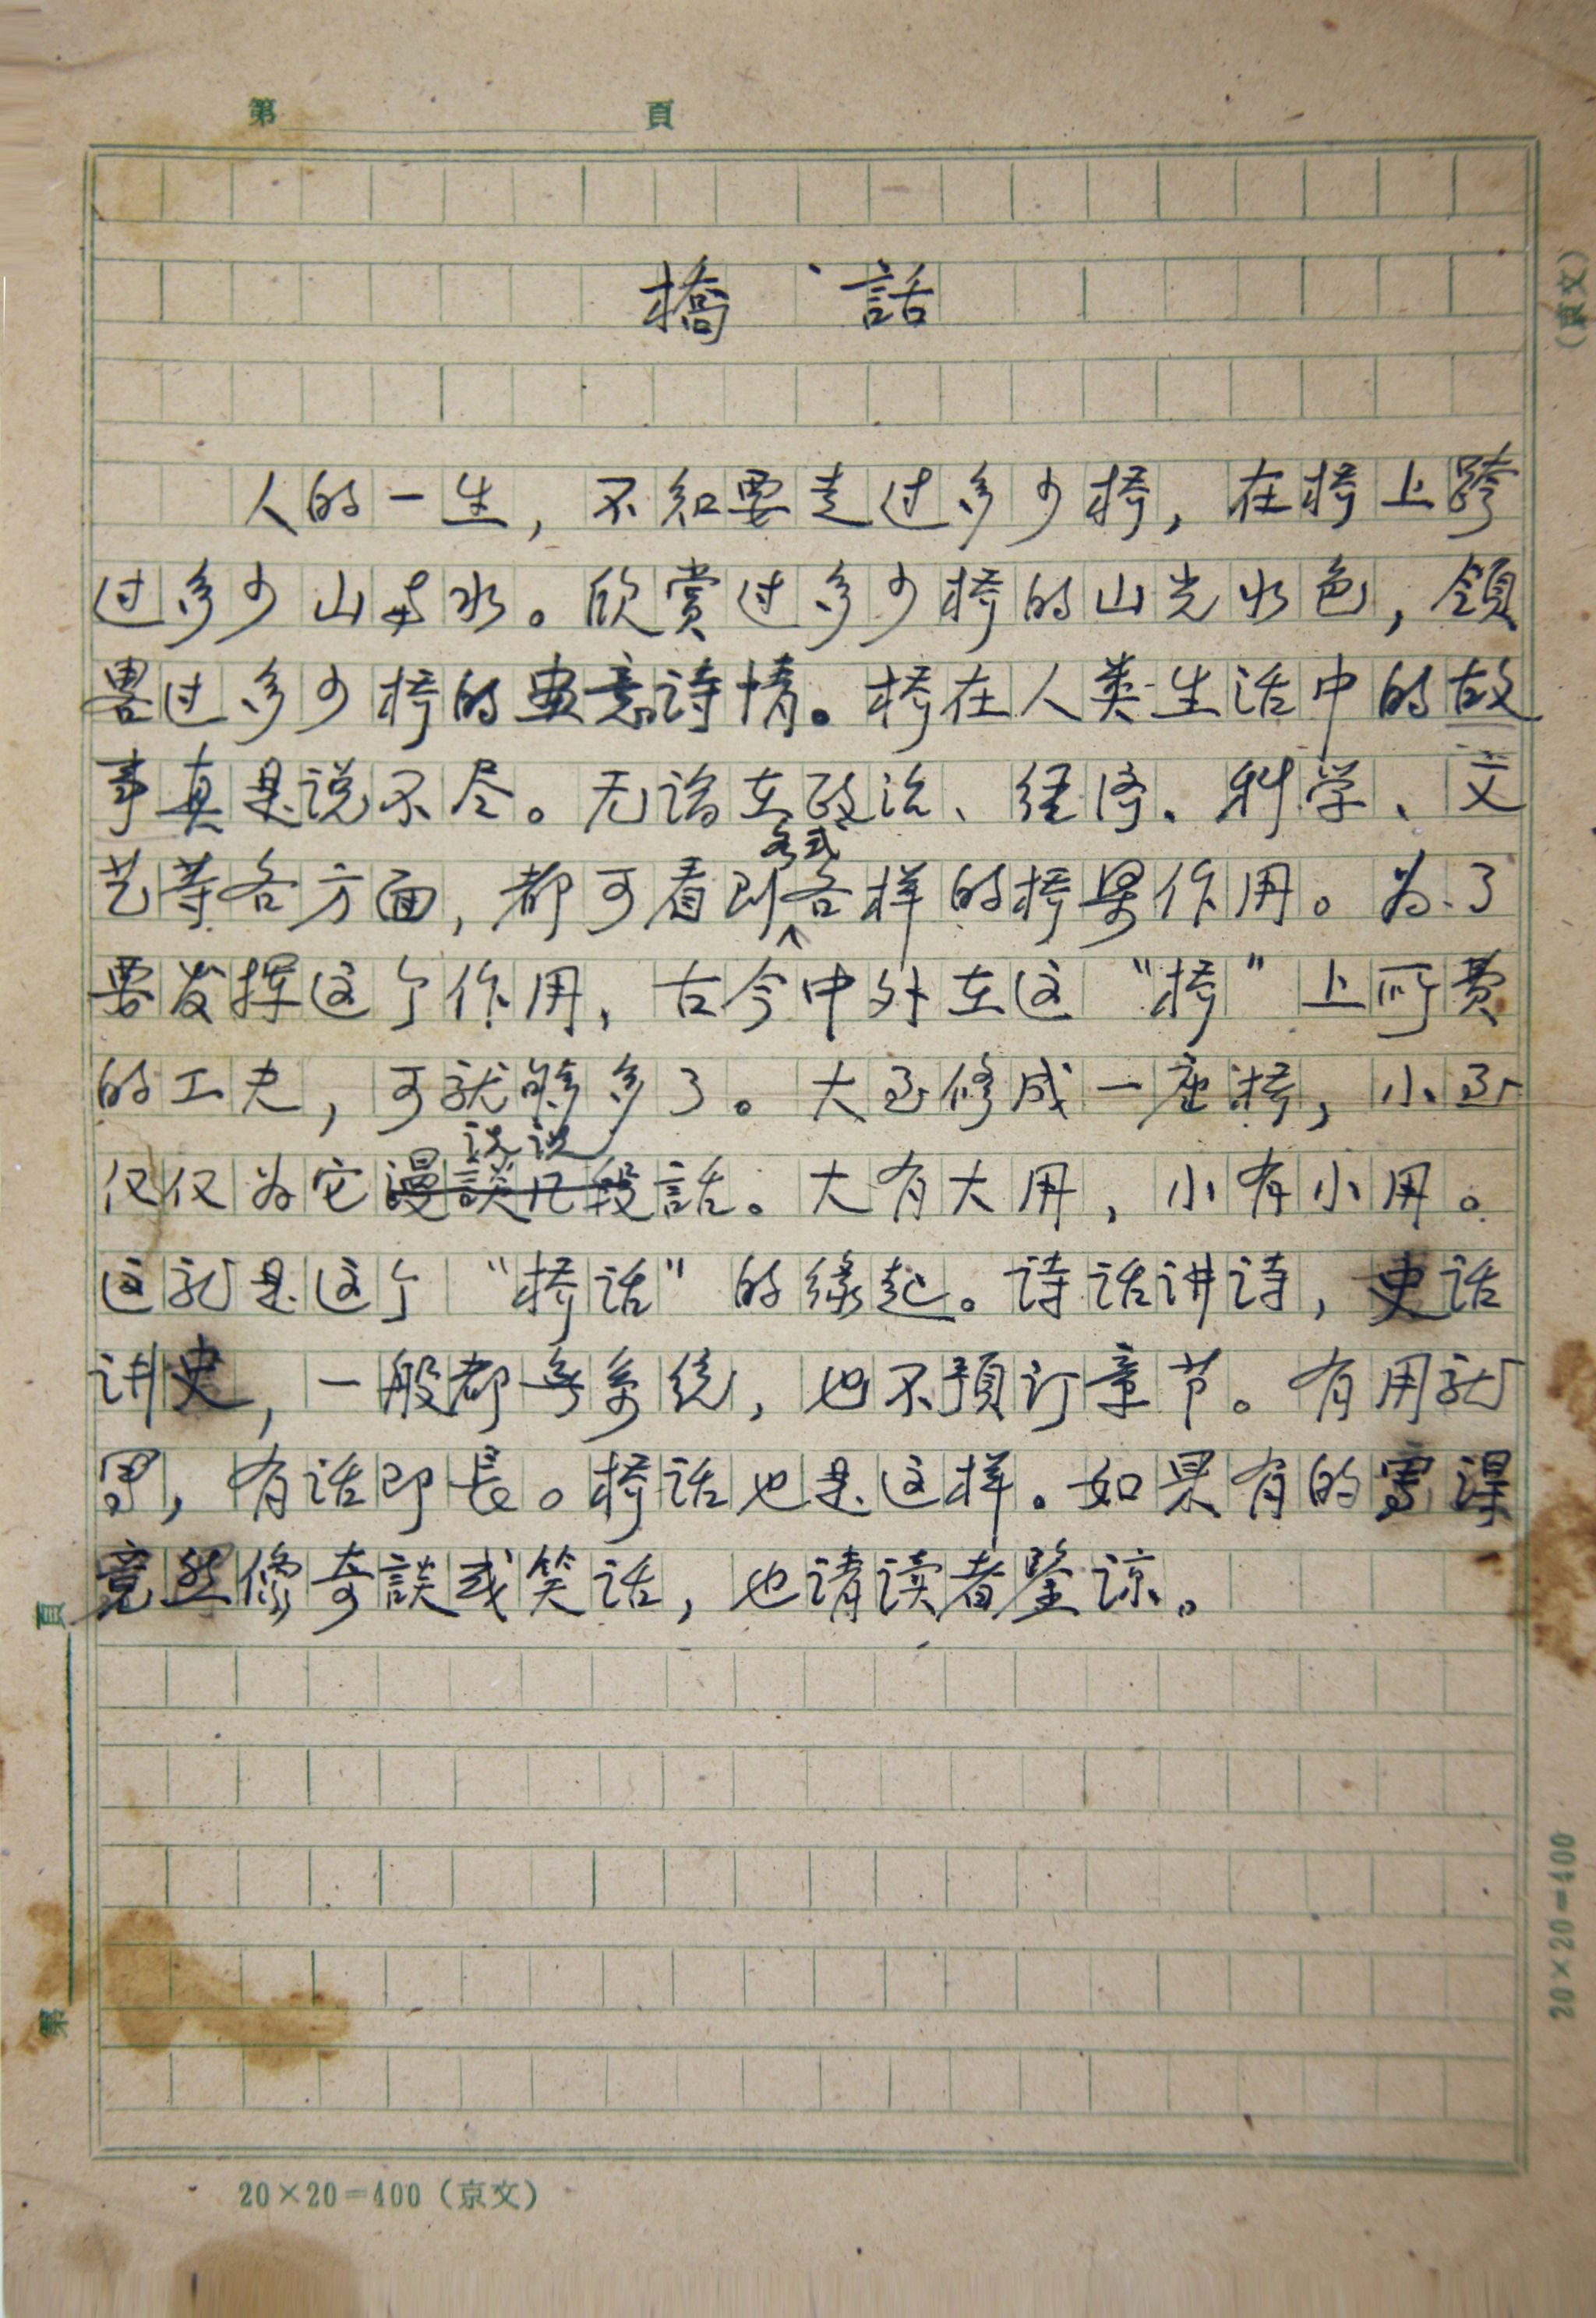 第 頁
橋 話
人的一生，不知要走过多少桥，在桥上跨
过多少山与水。欣赏过多少桥的山光水色，领
畧过多少桥的画意诗情。桥在人类生活中的故
事真是说不尽。无论在政治、经济、科学、文
艺等各方面，都可看到各式各样的桥梁作用。为了
要发挥这个作用，古今中外在这“桥”上所费
的工夫，可就够多了。大至修成一座桥，小至
仅仅为它说说話。大有大用，小有小用。
这就是这个“桥话”的缘起。诗话讲诗，史话
讲史，一般都无系统，也不預订章节。有用就
写，有话即長。桥话也是这样。如果有的
竟然像奇談或笑话，也请读者鉴谅。
20×20=400（京文）
第 頁
（京文）
20×20=400